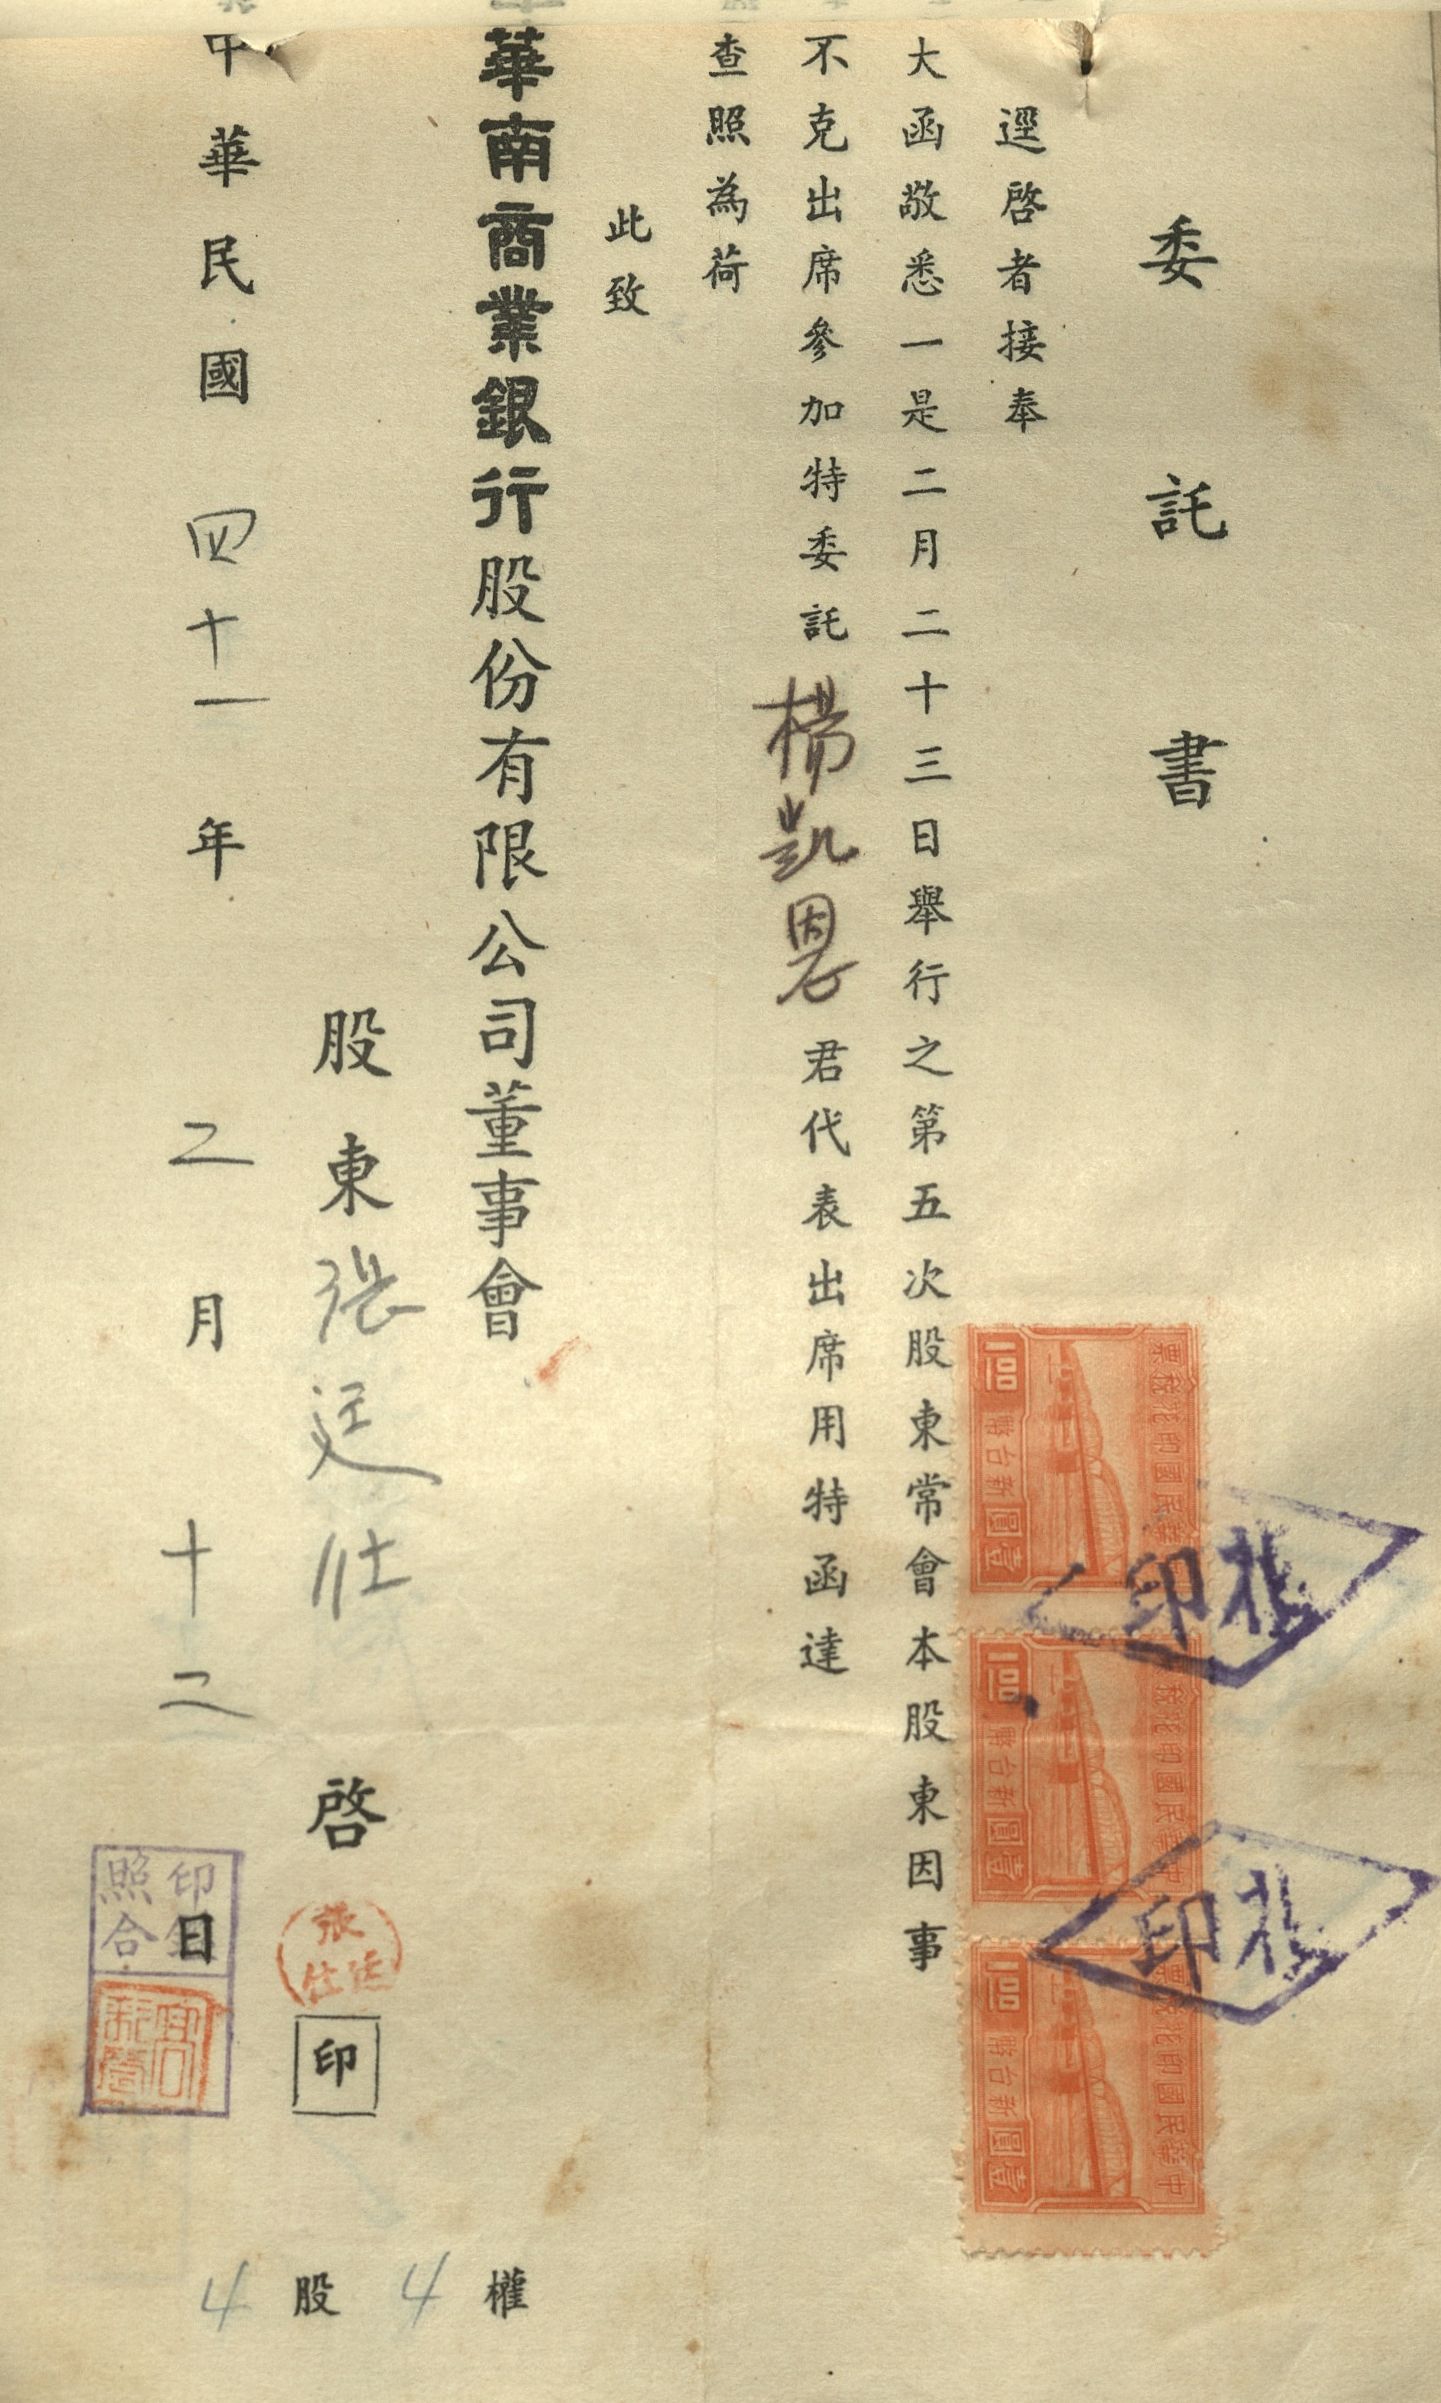 委託書
逕啓者接奉
大函敬悉一是二月二十三日舉行之第五次股東常會本股東因事
不克出席參加特委託楊凱恩君代表出席用特函達
查照為荷
此致
華南商業銀行股份有限公司董事會
股東張廷仕啓
印
中華民國四十一年二月十二日
4股4權
張廷仕
印鑑照合
中華民國印花稅票
新台幣
壹圓
中華民國印花稅票
新台幣
壹圓
中華民國印花稅票
新台幣
壹圓